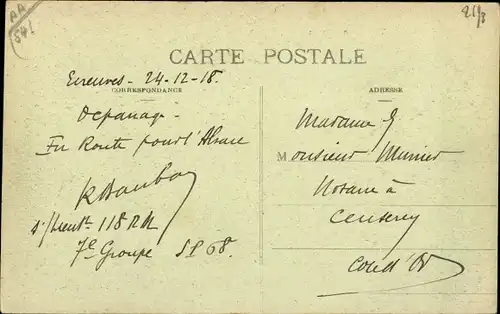 AA
541
21/3
CARTE POSTALE
24-12-18.
CORRESPONDANCE
ADRESSE
Depanage -
En Route pour l'Alsace
s/Lieutt 118 RAL
7e Groupe SP 68.
Madame &
Monsieur Munier
Notaire à
Censerey
Côte d'Or